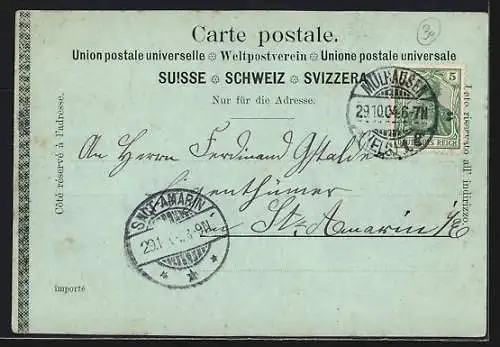 Carte postale.
Union postale universelle Weltpostverein Unione postale universale
SUISSE SCHWEIZ SVIZZERA
Nur für die Adresse.
Côté réservé à l'adresse.
Lato riservato all' indirizzo.
MÜLHAUSEN
29.10.04.6-7N
(ELSASS)
5
DEUTSCHES REICH
An Herrn Ferdinand Gstalder
Eigenthümer
in St. Amarin i/E
SANCT-AMARIN
29.1
8-9N
importé